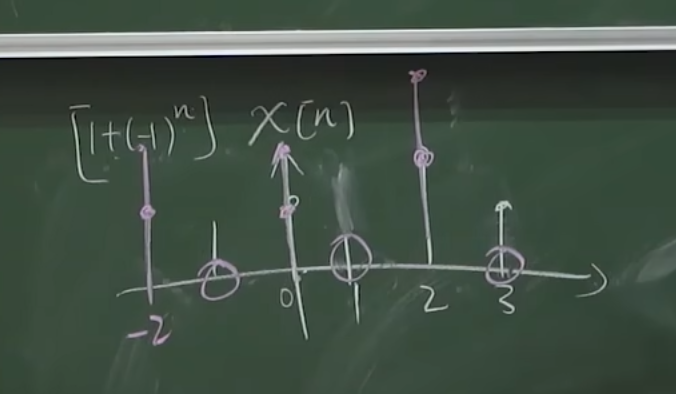 [1+(-1)^n] x[n]
-2 0 1 2 3